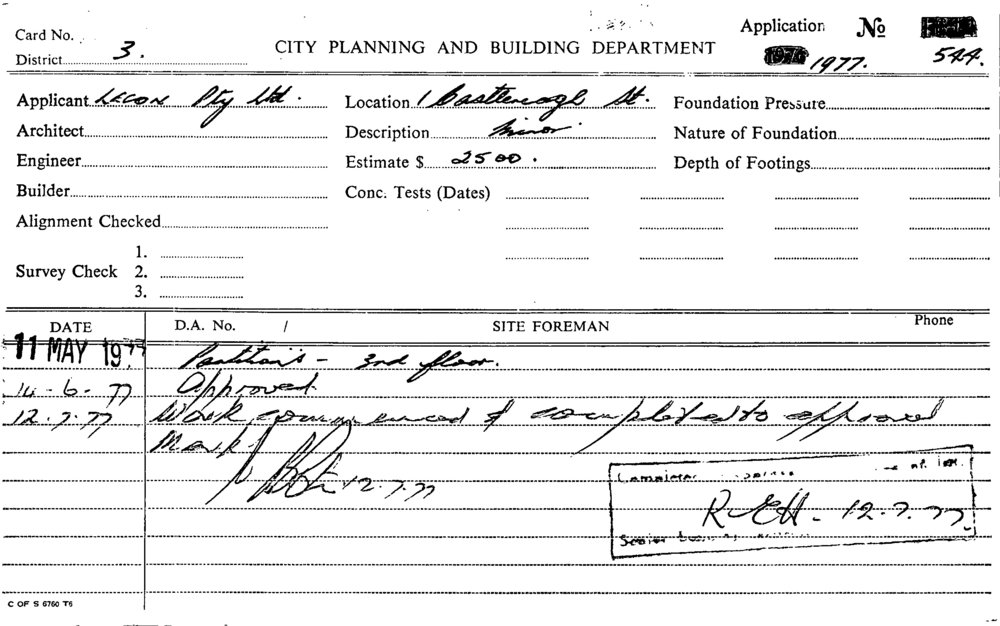 Card No.
Application No
District 3.
CITY PLANNING AND BUILDING DEPARTMENT
1977. 544.
Applicant LECON Pty Ltd. Location 1 Castlereagh St. Foundation Pressure
Architect Description Minor Nature of Foundation
Engineer Estimate $ 2500. Depth of Footings
Builder Conc. Tests (Dates)
Alignment Checked
1.
Survey Check 2.
3.
DATE D.A. No. / SITE FOREMAN Phone
11 MAY 1977 Partition's - 3rd floor.
14-6-77 Approved
12.7.77 Work commenced & completed to approved
Mark.
12.7.77
12.7.77
Senior
C OF S 6760 T6